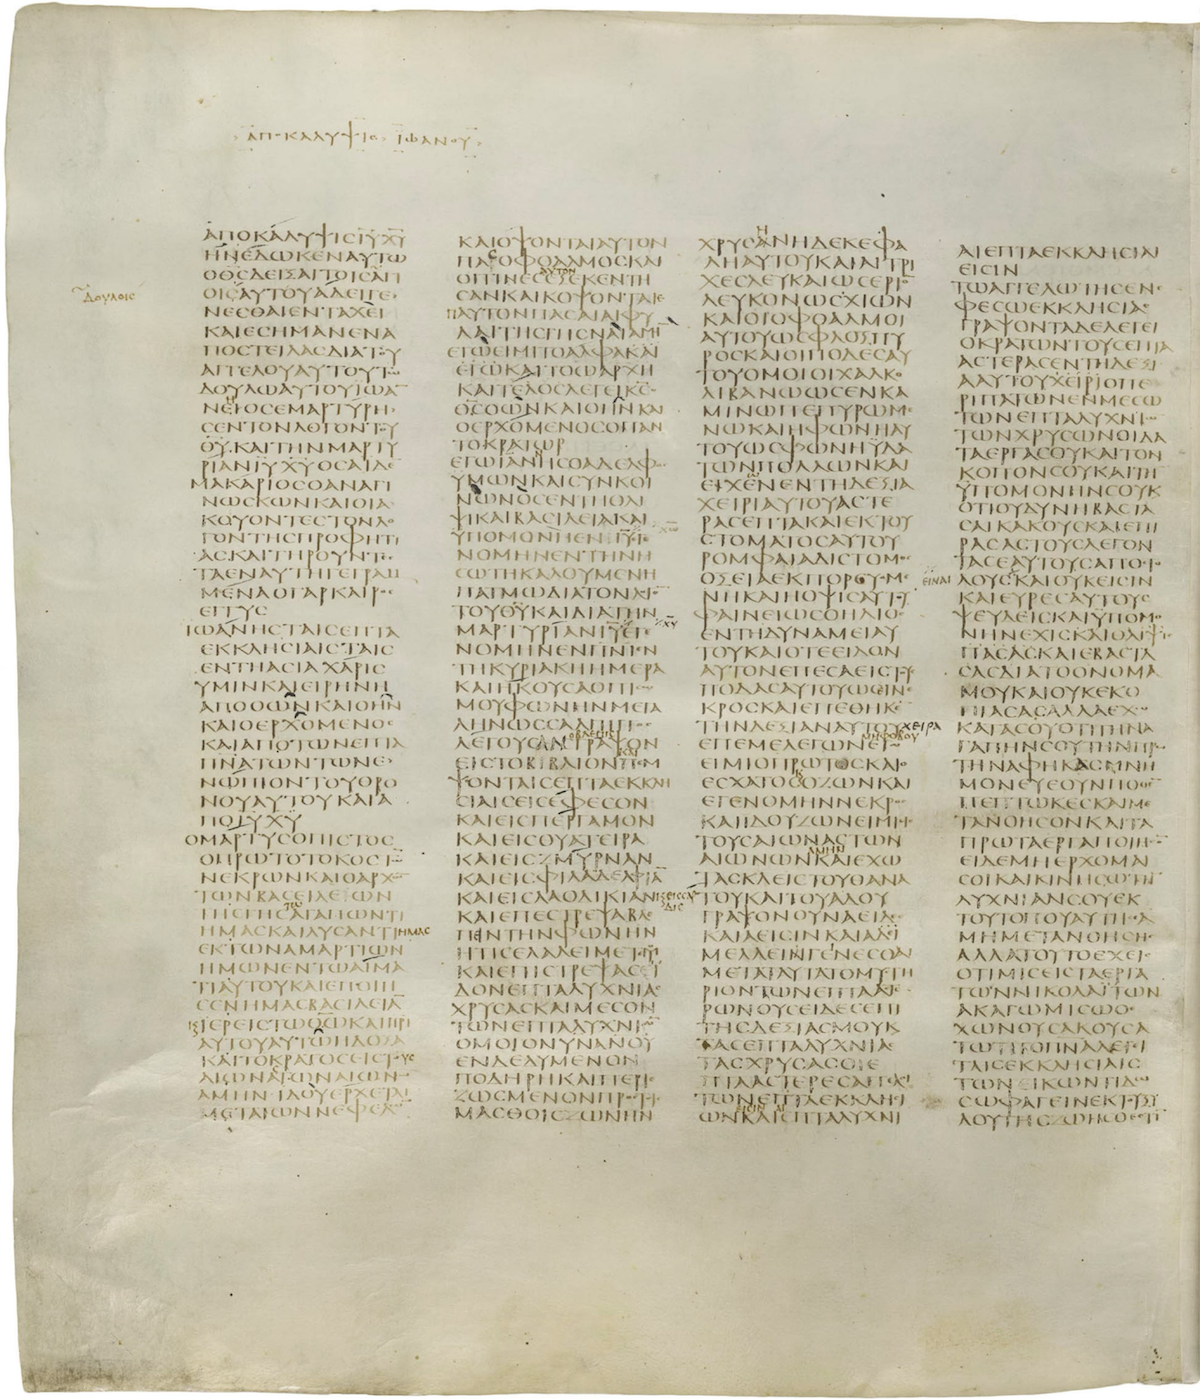 ΑΠΟΚΑΛΥΨΙϹ ΙΩΑΝΟΥ
ΑΠΟΚΑΛΥΨΙϹ ΙΥ ΧΥ
ΗΝ ΕΔΩΚΕΝ ΑΥΤΩ
Ο ΘϹ ΔΕΙΞΑΙ ΤΟΙϹ ΑΓΙ
ΟΙϹ ΑΥΤΟΥ Α ΔΕΙ ΓΕ
ΔΟΥΛΟΙϹ
ΝΕϹΘΑΙ ΕΝ ΤΑΧΕΙ
ΚΑΙ ΕϹΗΜΑΝΕΝ Α
ΠΟϹΤΕΙΛΑϹ ΔΙΑ ΤΟΥ
ΑΓΓΕΛΟΥ ΑΥΤΟΥ ΤΩ
ΔΟΥΛΩ ΑΥΤΟΥ ΙΩΑ
ΝΕΙ ΟϹ ΕΜΑΡΤΥΡΗ
ϹΕΝ ΤΟΝ ΛΟΓΟΝ ΤΟΥ
ΘΥ ΚΑΙ ΤΗΝ ΜΑΡΤΥ
ΡΙΑΝ ΙΥ ΧΥ ΟϹΑ ΙΔΕ
ΜΑΚΑΡΙΟϹ Ο ΑΝΑΓΙ
ΝΩϹΚΩΝ ΚΑΙ ΟΙ Α
ΚΟΥΟΝΤΕϹ ΤΟΝ ΛΟ
ΓΟΝ ΤΗϹ ΠΡΟΦΗΤΙ
ΑϹ ΚΑΙ ΤΗΡΟΥΝΤΕϹ
ΤΑ ΕΝ ΑΥΤΗ ΓΕΓΡΑΜ
ΜΕΝΑ Ο ΓΑΡ ΚΑΙΡΟϹ
ΕΓΓΥϹ
ΙΩΑΝΗϹ ΤΑΙϹ ΕΠΤΑ
ΕΚΚΛΗϹΙΑΙϹ ΤΑΙϹ
ΕΝ ΤΗ ΑϹΙΑ ΧΑΡΙϹ
ΥΜΙΝ ΚΑΙ ΕΙΡΗΝΗ
ΑΠΟ Ο ΩΝ ΚΑΙ Ο ΗΝ
ΚΑΙ Ο ΕΡΧΟΜΕΝΟϹ
ΚΑΙ ΑΠΟ ΤΩΝ ΕΠΤΑ
ΠΝΑΤΩΝ ΤΩΝ Ε
ΝΩΠΙΟΝ ΤΟΥ ΘΡΟ
ΝΟΥ ΑΥΤΟΥ ΚΑΙ Α
ΠΟ ΙΥ ΧΥ
Ο ΜΑΡΤΥϹ Ο ΠΙϹΤΟϹ
Ο ΠΡΩΤΟΤΟΚΟϹ ΤΩΝ
ΝΕΚΡΩΝ ΚΑΙ Ο ΑΡΧΩΝ
ΤΩΝ ΒΑϹΕΙΛΕΙΩΝ
ΤΗϹ ΓΗϹ ΤΩ ΑΓΑΠΩΝΤΙ
ΗΜΑϹ ΚΑΙ ΛΥϹΑΝΤΙ ΗΜΑϹ
ΕΚ ΤΩΝ ΑΜΑΡΤΙΩΝ
ΗΜΩΝ ΕΝ ΤΩ ΑΙΜΑ
ΤΙ ΑΥΤΟΥ ΚΑΙ ΕΠΟΙΗ
ϹΕΝ ΗΜΑϹ ΒΑϹΙΛΕΙΑΝ
ΙΕΡΕΙϹ ΤΩ ΘΩ ΚΑΙ ΠΡΙ
ΑΥΤΟΥ ΑΥΤΩ Η ΔΟΞΑ
ΚΑΙ ΤΟ ΚΡΑΤΟϹ ΕΙϹ ΤΟΥϹ
ΑΙΩΝΑϹ ΤΩΝ ΑΙΩΝΩΝ
ΑΜΗΝ ΙΔΟΥ ΕΡΧΕΤΑΙ
ΜΕΤΑ ΤΩΝ ΝΕΦΕΛΩΝ
ΚΑΙ ΟΨΟΝΤΑΙ ΑΥΤΟΝ
ΠΑϹ ΟΦΘΑΛΜΟϹ ΚΑΙ
ΟΙΤΙΝΕϹ ΑΥΤΟΝ ΕΞΕΚΕΝΤΗ
ϹΑΝ ΚΑΙ ΚΟΨΟΝΤΑΙ Ε
Π ΑΥΤΟΝ ΠΑϹΑΙ ΑΙ ΦΥ
ΛΑΙ ΤΗϹ ΓΗϹ ΝΑΙ ΑΜΗ
ΕΓΩ ΕΙΜΙ ΤΟ ΑΛΦΑ ΚΑΙ
ΕΓΩ ΚΑΙ ΤΟ Ω ΑΡΧΗ
ΚΑΙ ΤΕΛΟϹ ΛΕΓΕΙ ΚϹ
Ο ΘϹ Ο ΩΝ ΚΑΙ Ο ΗΝ ΚΑΙ
Ο ΕΡΧΟΜΕΝΟϹ Ο ΠΑΝ
ΤΟΚΡΑΤΩΡ
ΕΓΩ ΙΩΑΝΗϹ Ο ΑΔΕΛΦΟϹ
ΥΜΩΝ ΚΑΙ ϹΥΝΚΟΙ
ΝΩΝΟϹ ΕΝ ΤΗ ΘΛΙ
ΨΙ ΚΑΙ ΒΑϹΙΛΕΙΑ ΚΑΙ
ΥΠΟΜΟΝΗ ΕΝ ΙΥ ΕΓΕ
ΝΟΜΗΝ ΕΝ ΤΗ ΝΗ
ϹΩ ΤΗ ΚΑΛΟΥΜΕΝΗ
ΠΑΤΜΩ ΔΙΑ ΤΟΝ ΛΟΓΟΝ
ΤΟΥ ΘΥ ΚΑΙ ΔΙΑ ΤΗΝ
ΜΑΡΤΥΡΙΑΝ ΙΥ ΕΓΕ
ΝΟΜΗΝ ΕΝ ΠΝΙ ΕΝ
ΤΗ ΚΥΡΙΑΚΗ ΗΜΕΡΑ
ΚΑΙ ΗΚΟΥϹΑ ΟΠΙϹΩ
ΜΟΥ ΦΩΝΗΝ ΜΕΓΑ
ΛΗΝ ΩϹ ϹΑΛΠΙΓΓΟϹ
ΛΕΓΟΥϹΑΝ Ο ΒΛΕΠΕΙϹ ΓΡΑΨΟΝ
ΕΙϹ ΤΟ ΒΙΒΛΙΟΝ ΚΑΙ ΠΕΜ
ΨΟΝ ΤΑΙϹ ΕΠΤΑ ΕΚΚΛΗ
ϹΙΑΙϹ ΕΙϹ ΕΦΕϹΟΝ
ΚΑΙ ΕΙϹ ΠΕΡΓΑΜΟΝ
ΚΑΙ ΕΙϹ ΘΥΑΤΕΙΡΑ
ΚΑΙ ΕΙϹ ΖΜΥΡΝΑΝ
ΚΑΙ ΕΙϹ ΦΙΛΑΔΕΛΦΙΑ
ΚΑΙ ΕΙϹ ΛΑΟΔΙΚΙΑΝ ΚΑΙ ΕΙϹ ϹΑΡΔΙϹ
ΚΑΙ ΕΠΕϹΤΡΕΨΑ ΒΛΕ
ΠΙΝ ΤΗΝ ΦΩΝΗΝ
ΗΤΙϹ ΕΛΑΛΕΙ ΜΕΤ ΕΜΟΥ
ΚΑΙ ΕΠΙϹΤΡΕΨΑϹ ΕΙ
ΔΟΝ ΕΠΤΑ ΛΥΧΝΙΑϹ
ΧΡΥϹΑϹ ΚΑΙ ΜΕϹΟΝ
ΤΩΝ ΕΠΤΑ ΛΥΧΝΙΩΝ
ΟΜΟΙΟΝ ΥΝ ΑΝΟΥ
ΕΝΔΕΔΥΜΕΝΟΝ
ΠΟΔΗΡΗ ΚΑΙ ΠΕΡΙΕ
ΖΩϹΜΕΝΟΝ ΠΡΟϹ ΤΟΙϹ
ΜΑϹΘΟΙϹ ΖΩΝΗΝ
ΧΡΥϹΑΝ Η ΔΕ ΚΕΦΑ
ΛΗ ΑΥΤΟΥ ΚΑΙ ΑΙ ΤΡΙ
ΧΕϹ ΛΕΥΚΑΙ ΩϹ ΕΡΙΟΝ
ΛΕΥΚΟΝ ΩϹ ΧΙΩΝ
ΚΑΙ ΟΙ ΟΦΘΑΛΜΟΙ
ΑΥΤΟΥ ΩϹ ΦΛΟΞ ΠΥ
ΡΟϹ ΚΑΙ ΟΙ ΠΟΔΕϹ ΑΥ
ΤΟΥ ΟΜΟΙΟΙ ΧΑΛΚΟ
ΛΙΒΑΝΩ ΩϹ ΕΝ ΚΑ
ΜΙΝΩ ΠΕΠΥΡΩΜΕ
ΝΩ ΚΑΙ Η ΦΩΝΗ ΑΥ
ΤΟΥ ΩϹ ΦΩΝΗ ΥΔΑ
ΤΩΝ ΠΟΛΛΩΝ ΚΑΙ
ΕΙΧΕΝ ΕΝ ΤΗ ΔΕΞΙΑ
ΧΕΙΡΙ ΑΥΤΟΥ ΑϹΤΕ
ΡΑϹ ΕΠΤΑ ΚΑΙ ΕΚ ΤΟΥ
ϹΤΟΜΑΤΟϹ ΑΥΤΟΥ
ΡΟΜΦΑΙΑ ΔΙϹΤΟΜΟϹ
ΟΞΕΙΑ ΕΚΠΟΡΕΥΟΜΕ
ΝΗ ΚΑΙ Η ΟΨΙϹ ΑΥΤΟΥ
ΦΑΙΝΕΙ ΩϹ Ο ΗΛΙΟϹ
ΕΝ ΤΗ ΔΥΝΑΜΕΙ ΑΥ
ΤΟΥ ΚΑΙ ΟΤΕ ΕΙΔΟΝ
ΑΥΤΟΝ ΕΠΕϹΑ ΕΙϹ ΤΟΥϹ
ΠΟΔΑϹ ΑΥΤΟΥ ΩϹΙ ΝΕ
ΚΡΟϹ ΚΑΙ ΕΠΕΘΗΚΕΝ
ΤΗΝ ΔΕΞΙΑΝ ΑΥΤΟΥ ΧΕΙΡΑ
ΕΠ ΕΜΕ ΛΕΓΩΝ ΜΗ ΦΟΒΟΥ ΕΓΩ
ΕΙΜΙ Ο ΠΡΩΤΟϹ ΚΑΙ Ο
ΕϹΧΑΤΟϹ Ο ΖΩΝ ΚΑΙ
ΕΓΕΝΟΜΗΝ ΝΕΚΡΟϹ
ΚΑΙ ΙΔΟΥ ΖΩΝ ΕΙΜΙ ΕΙϹ
ΤΟΥϹ ΑΙΩΝΑϹ ΤΩΝ
ΑΙΩΝΩΝ ΑΜΗΝ ΚΑΙ ΕΧΩ
ΤΑϹ ΚΛΕΙϹ ΤΟΥ ΘΑΝΑ
ΤΟΥ ΚΑΙ ΤΟΥ ΑΔΟΥ
ΓΡΑΨΟΝ ΟΥΝ Α ΕΙΔΕϹ
ΚΑΙ Α ΕΙϹΙΝ ΚΑΙ Α ΔΙ
ΜΕΛΛΕΙΝ ΓΕΝΕϹΘΑΙ
ΜΕΤΑ ΤΑΥΤΑ ΤΟ ΜΥϹΤΗ
ΡΙΟΝ ΤΩΝ ΕΠΤΑ ΑϹΤΕ
ΡΩΝ ΟΥϹ ΕΙΔΕϹ ΕΠΙ
ΤΗϹ ΔΕΞΙΑϹ ΜΟΥ Κ
ΤΑϹ ΕΠΤΑ ΛΥΧΝΙΑϹ
ΤΑϹ ΧΡΥϹΑϹ ΟΙ Ε
ΠΤΑ ΑϹΤΕΡΕϹ ΑΓΓΕΛΟΙ
ΤΩΝ ΕΠΤΑ ΕΚΚΛΗϹΙ
ΩΝ ΕΙϹΙΝ ΚΑΙ ΑΙ ΕΠΤΑ ΛΥΧΝΙ
ΑΙ ΕΠΤΑ ΕΚΚΛΗϹΙΑΙ
ΕΙϹΙΝ
ΤΩ ΑΓΓΕΛΩ ΤΗϹ ΕΝ Ε
ΦΕϹΩ ΕΚΚΛΗϹΙΑϹ
ΓΡΑΨΟΝ ΤΑΔΕ ΛΕΓΕΙ
Ο ΚΡΑΤΩΝ ΤΟΥϹ ΕΠΤΑ
ΑϹΤΕΡΑϹ ΕΝ ΤΗ ΔΕΞΙ
Α ΑΥΤΟΥ ΧΕΙΡΙ Ο ΠΕ
ΡΙΠΑΤΩΝ ΕΝ ΜΕϹΩ
ΤΩΝ ΕΠΤΑ ΛΥΧΝΙΩΝ
ΤΩΝ ΧΡΥϹΩΝ ΟΙΔΑ
ΤΑ ΕΡΓΑ ϹΟΥ ΚΑΙ ΤΟΝ
ΚΟΠΟΝ ϹΟΥ ΚΑΙ ΤΗΝ
ΥΠΟΜΟΝΗΝ ϹΟΥ Κ
ΟΤΙ ΟΥ ΔΥΝΗ ΒΑϹΤΑ
ϹΑΙ ΚΑΚΟΥϹ ΚΑΙ ΕΠΙ
ΡΑϹΑϹ ΤΟΥϹ ΛΕΓΟΝ
ΤΑϹ ΕΑΥΤΟΥϹ ΑΠΟϹΤΟ
ΛΟΥϹ ΕΙΝΑΙ ΚΑΙ ΟΥΚ ΕΙϹΙΝ
ΚΑΙ ΕΥΡΕϹ ΑΥΤΟΥϹ
ΨΕΥΔΕΙϹ ΚΑΙ ΥΠΟΜΟ
ΝΗΝ ΕΧΙϹ ΚΑΙ ΘΛΙΨΙϹ
ΠΑϹΑϹ ΚΑΙ ΕΒΑϹΤΑ
ϹΑϹ ΔΙΑ ΤΟ ΟΝΟΜΑ
ΜΟΥ ΚΑΙ ΟΥΚ ΕΚΟ
ΠΙΑϹΑϹ ΑΛΛΑ ΕΧΩ
ΚΑΤΑ ϹΟΥ ΟΤΙ ΤΗΝ Α
ΓΑΠΗΝ ϹΟΥ ΤΗΝ ΠΡΩ
ΤΗΝ ΑΦΗΚΑϹ ΜΝΗ
ΜΟΝΕΥΕ ΟΥΝ ΠΟΘΕΝ
ΠΕΠΤΩΚΕϹ ΚΑΙ ΜΕ
ΤΑΝΟΗϹΟΝ ΚΑΙ ΤΑ
ΠΡΩΤΑ ΕΡΓΑ ΠΟΙΗϹΟΝ
ΕΙ ΔΕ ΜΗ ΕΡΧΟΜΑΙ
ϹΟΙ ΚΑΙ ΚΙΝΗϹΩ ΤΗΝ
ΛΥΧΝΙΑΝ ϹΟΥ ΕΚ
ΤΟΥ ΤΟΠΟΥ ΑΥΤΗϹ Ε
ΑΝ ΜΗ ΜΕΤΑΝΟΗϹΗϹ
ΑΛΛΑ ΤΟΥΤΟ ΕΧΕΙϹ
ΟΤΙ ΜΙϹΕΙϹ ΤΑ ΕΡΓΑ
ΤΩΝ ΝΙΚΟΛΑΪΤΩΝ
Α ΚΑΓΩ ΜΙϹΩ Ο Ε
ΧΩΝ ΟΥϹ ΑΚΟΥϹΑ
ΤΩ ΤΙ ΤΟ ΠΝΑ ΛΕΓΕΙ
ΤΑΙϹ ΕΚΚΛΗϹΙΑΙϹ
ΤΩ ΝΙΚΩΝΤΙ ΔΩ
ϹΩ ΦΑΓΕΙΝ ΕΚ ΤΟΥ ΞΥ
ΛΟΥ ΤΗϹ ΖΩΗϹ Ο ΕϹΤΙ